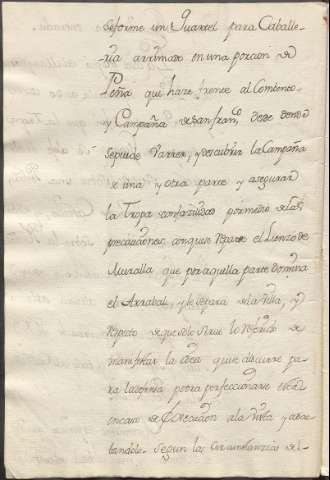 se forme un Quartel para Caballe-
ria arrimado en una porcion de
Peña que haze frente al Combento
y Campaña de San Fran.co desde donde
se puede barrer, y descubrir la Campaña
de una y otra parte y asegurar
la Tropa con facilidad por medio de las
precauciones, con que se repare el Lienzo de
Muralla, que por aquella parte domina
el Arrabal, y le separa de la Villa, y
respeto de que solo sirue lo referido de
manifestar la idea que se discurre pa-
ra la defensa podra perfeccionarse
en caso de ejecucion a la vista y
segun las circunstancias del